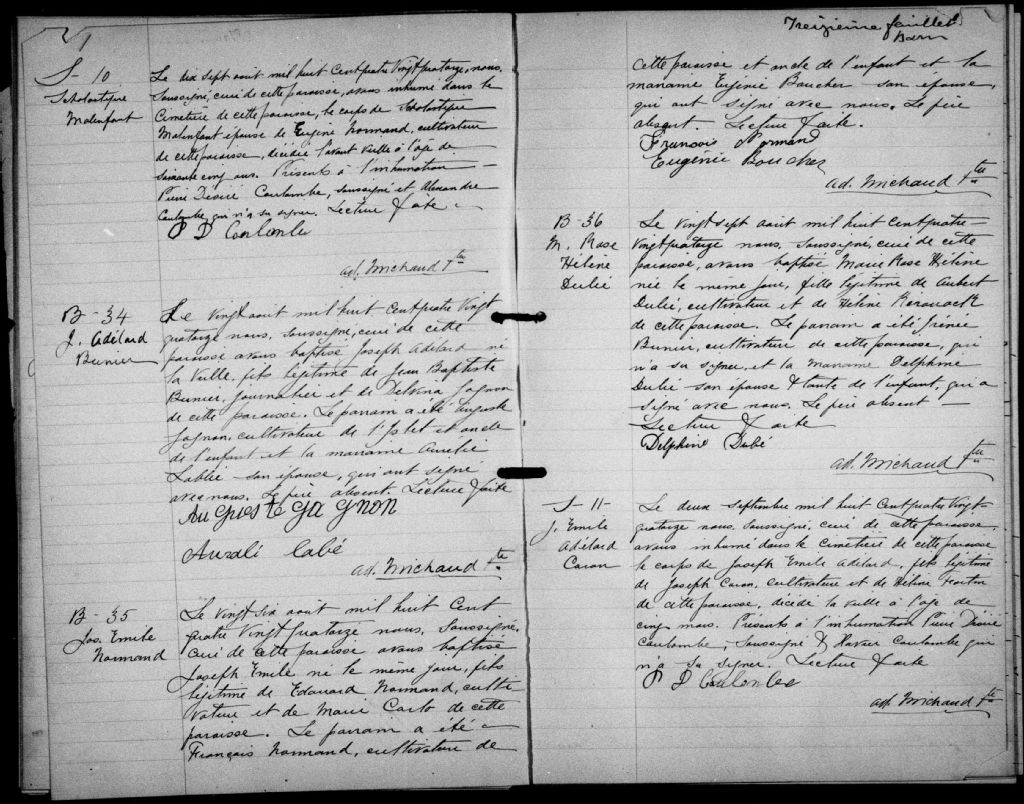 S - 10
Scholastique
Malenfant
Le dix sept aout mil huit cent quatre vingt quatorze, nous,
soussigné, curé de cette paroisse, avons inhumé dans le
cimetière de cette paroisse, le corps de Scholastique
Malenfant épouse de Eugène Normand, cultivateur
de cette paroisse, décédée l'avant veille à l'age de
soixante cinq ans. Présents à l'inhumation
Pierre Désiré Coulombe, soussigné et Alexandre
Coulombe qui n'a su signer. Lecture faite
P D Coulombe
ad. Michaud Ptre
B - 34
J. Adélard
Bernier
Le vingt aout mil huit cent quatre vingt
quatorze nous, soussigné, curé de cette
paroisse avons baptisé Joseph Adélard né
la veille, fils légitime de Jean Baptiste
Bernier, journalier et de Delvina Gagnon
de cette paroisse. Le parrain a été Auguste
Gagnon, cultivateur de l'Islet et oncle
de l'enfant et la marraine Aurélie
Labbé son épouse, qui ont signé
avec nous. Le père absent. Lecture faite
Auguste Gagnon
Auzali Labé
ad. Michaud Ptre
B - 35
Jos. Emile
Normand
Le vingt six août mil huit cent
quatre vingt quatorze nous, soussigné,
curé de cette paroisse avons baptisé
Joseph Emile né le même jour, fils
légitime de Edouard Normand, culti-
vateur et de Marie Caron de cette
paroisse. Le parrain a été
François Normand, cultivateur de
Treizième feuillet
cette paroisse et oncle de l'enfant et la
marraine Eugénie Boucher son épouse,
qui ont signé avec nous. Le père
absent. Lecture faite.
Francois Normand
Eugénie Boucher
ad. Michaud Ptre
B - 36
M. Rose
Hélène
Dubé
Le vingt sept août mil huit cent quatre
vingt quatorze nous, soussigné, curé de cette
paroisse, avons baptisé Marie Rose Hélène
née le même jour, fille légitime de Aubert
Dubé, cultivateur et de Hélène Kerouack
de cette paroisse. Le parrain a été Irénée
Bernier, cultivateur de cette paroisse, qui
n'a su signer, et la marraine Delphine
Dubé son épouse & tante de l'enfant, qui a
signé avec nous. Le père absent
Lecture faite
Delphine Dubé
ad. Michaud Ptre
S - 11 -
J. Emile
Adélard
Caron
Le deux Septembre mil huit cent quatre vingt-
quatorze nous, soussigné, curé de cette paroisse,
avons inhumé dans le cimetière de cette paroisse
le corps de Joseph Emile Adélard, fils légitime
de Joseph Caron, cultivateur et de Hélène
de cette paroisse, décédé la veille à l'age de
cinq mois. Présents à l'inhumation Pierre Désiré
Coulombe, soussigné & Xavier Coulombe qui
n'a su signer. Lecture faite
P D Coulombe
ad. Michaud Ptre